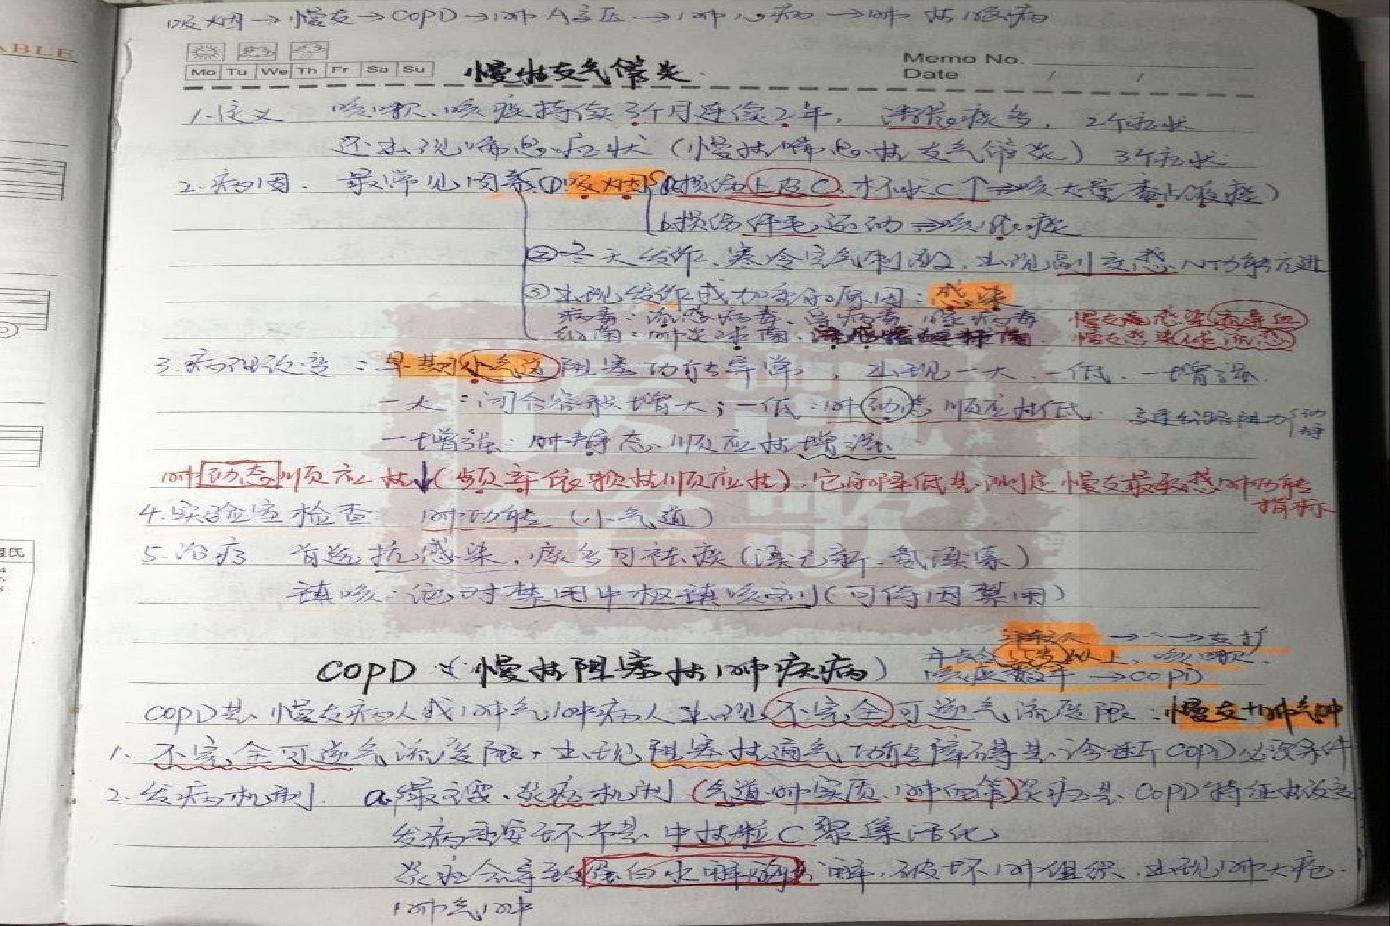 吸烟→慢支→COPD→肺A高压→肺心病→肺性脑病
ABLE
Mo Tu We Th Fr Sa Su
慢性支气管炎
Memo No.
Date / /
1.定义 咳嗽、咳痰持续3个月连续2年, 清晨痰多, 2个症状
还出现喘息症状 (慢性喘息性支气管炎) 3个症状
2.病因. 最常见因素①吸烟 a损伤上皮C.杯状C↑⇒咳大量黏液痰)
b损伤纤毛运动⇒咳痰
②冬天发作、寒冷空气刺激, 出现副交感N功能亢进
③出现发作或加重的原因:感染
病毒:流感病毒、鼻病毒、腺病毒 慢支感染病毒
细菌:肺炎球菌、 慢支感染
3.病理改变: 早期小气道阻塞功能异常, 出现一大.一低.一增强.
一大:闭合容积增大;一低:肺动态顺应性低
一增强:肺静态顺应性增强.
肺动态顺应性↓(频率依赖性顺应性).它的降低是测定慢支最敏感肺功能
指标
4.实验室检查 肺功能 (小气道)
5.治疗 首选抗感染, 痰多可祛痰(溴己新.氨溴索)
镇咳: 禁用中枢镇咳剂(可待因禁用)
年轻人→…→支扩
COPD (慢性阻塞性肺疾病)
年长 以上, 咳嗽.
咳痰数年→COPD
COPD是、慢支病人或肺气肿病人出现不完全可逆气流受限:慢支+肺气肿
1.不完全可逆气流受限,出现阻塞性通气功能障碍是诊断COPD必须条件
2.发病机制. a.最主要、炎症机制 (气道.肺实质.肺血管)炎症是、COPD特征性改变
发病重要环节是中性粒C聚集活化
炎症会导致蛋白水解酶 解、破坏肺组织.出现肺大疱.
肺气肿